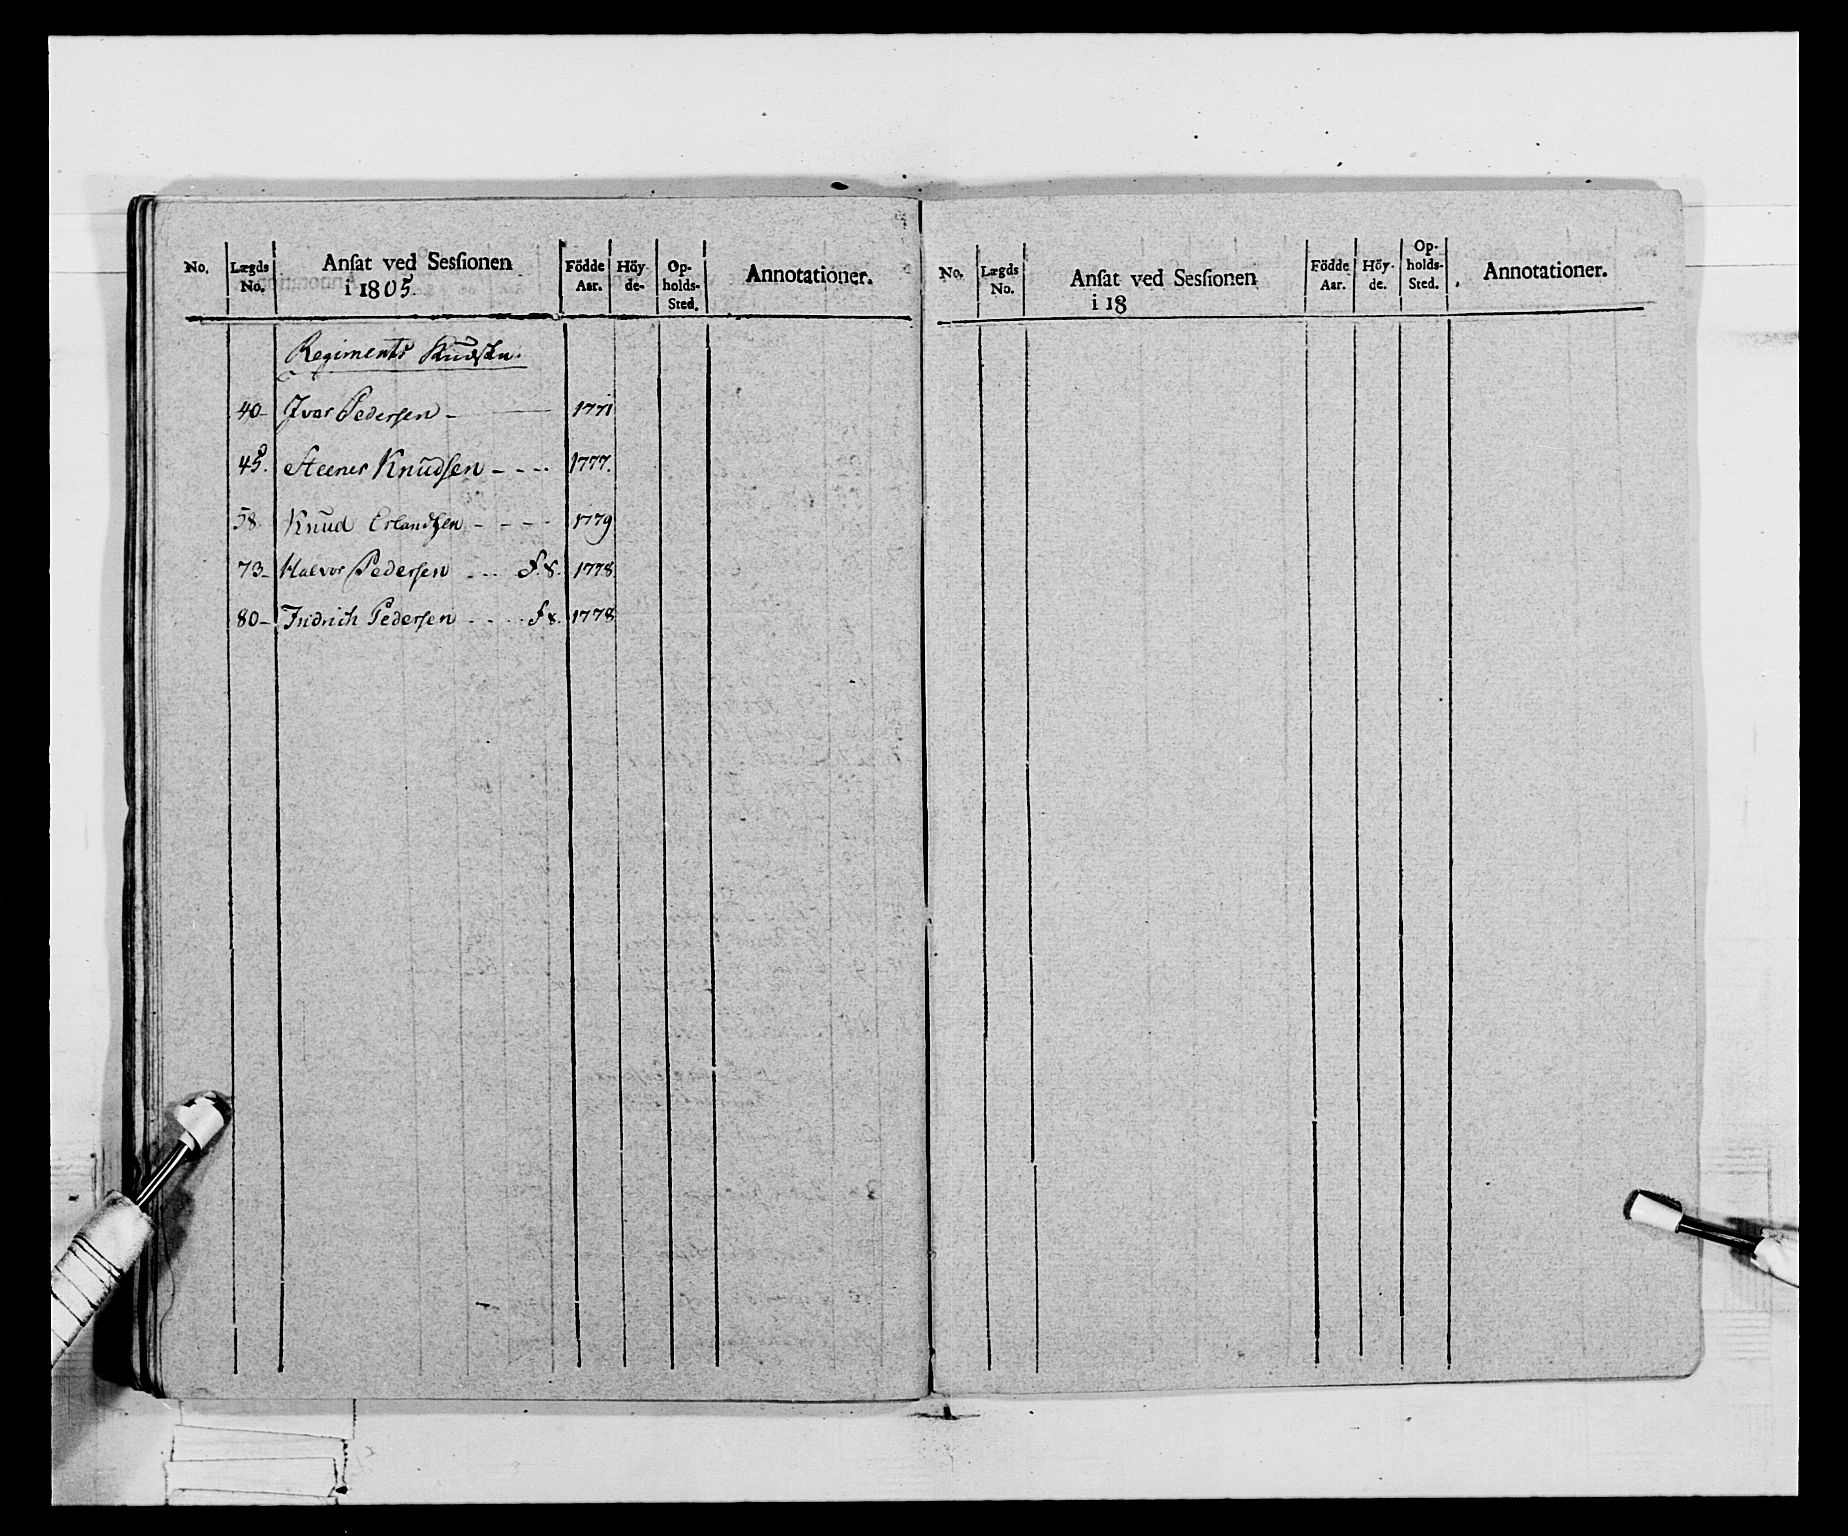 No. Lægds No. Ansat ved Sessionen i 1805. Födde Aar. Höy-de- Op-holds-Sted. Annotationer.
Regiments
40- Ivar Pedersen - 1771
45. Steener Knudsen - - - - 1777.
58 Knud Erlandsen - - - - 1779
73- Halvor Pedersen - - - f. 8. 1778
80- Fridrich Pedersen - - - - f 8. 1778
No. Lægds No. Ansat ved Sessionen i 18 Födde Aar. Höy-de. Op-holds-Sted. Annotationer.